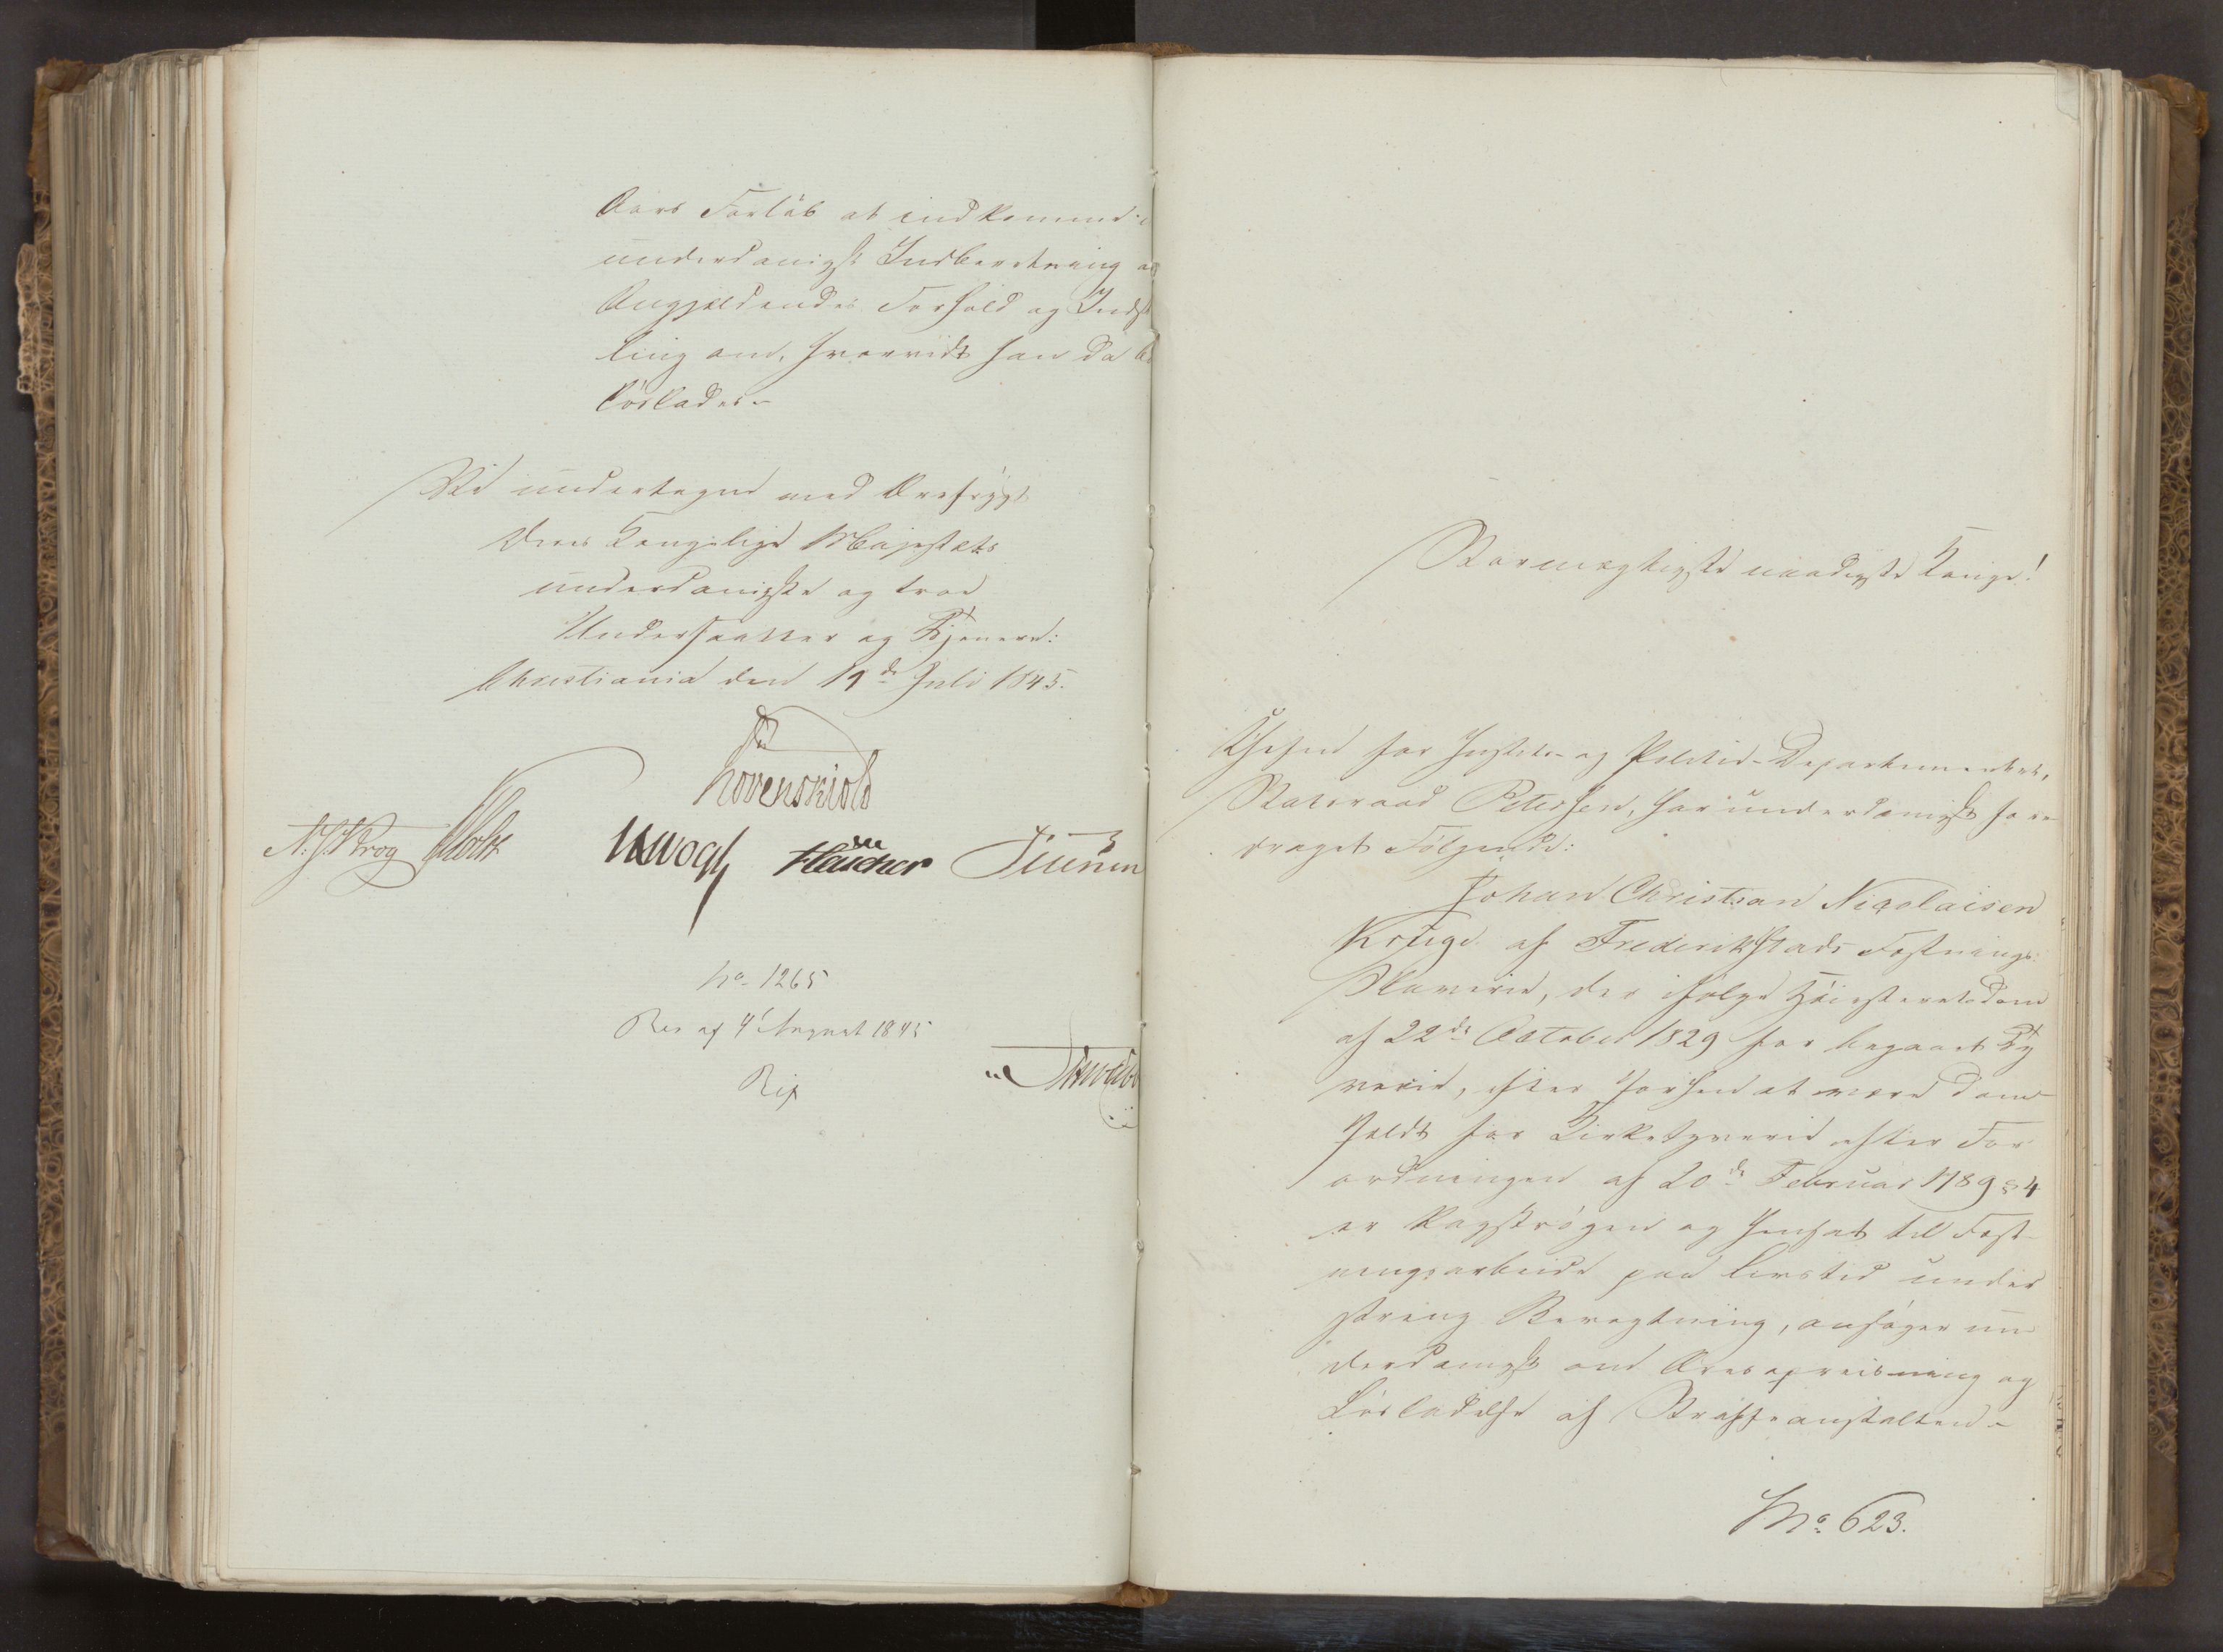 Aars Forløb at indkomme i
underdanigst Indberetning
Angjældendes Forhold og Indst
ling om, hvorvidt han da
löslades.-
Vi undertegne med Ærefrygt
Deres Kongelige Majestæts
underdanigste og troe
Undersaatter og Tjenere:
Christiania den 19de Juli 1845.
Løvenskiold
Krog Holst Vogt Fleischer
No 1265
Res af 4 August 1845
Stormægtigste naadigste Konge!
Chefen for Justits- og Politie-Departementet,
Statsraad Petersen, har underdanigst fore
draget Følgende:
Johan Christian Nicolaisen
Krüge af Frederikstads Fæstnings:
Slaverie, der ifølge Höiesteretsdom
af 22de October 1829 for begaaet Ty
verie, efter forhen at være dom-
fældt for Kirketyverie efter For
ordningen af 20de Februar 1789 § 4
er kagstrøgen og hensat til Fæst-
ningsarbeide paa Livstid under
streng Bevogtning, ansøger un
derdanigst om Æresopreisning og
Løsladelse af Straffeanstalten.-
No 623.